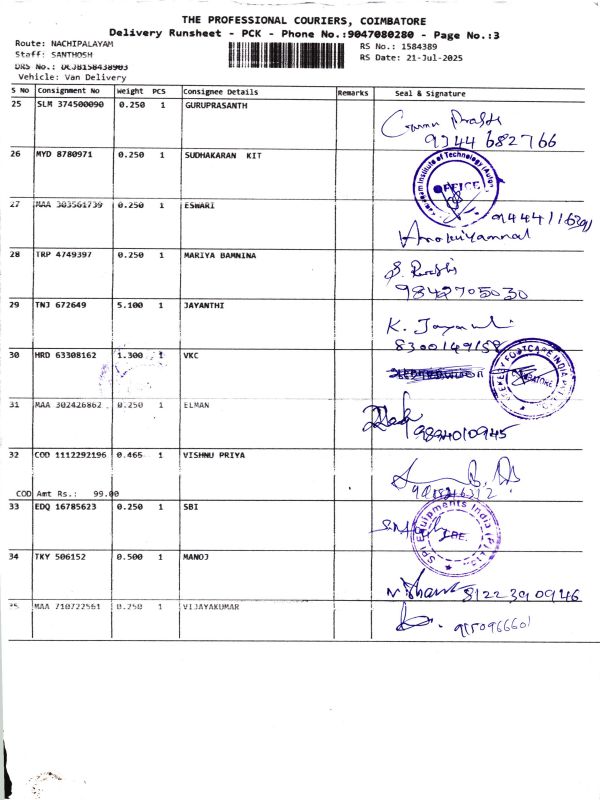 THE PROFESSIONAL COURIERS, COIMBATORE
Delivery Runsheet - PCK - Phone No.:9047080280 - Page No.:3
Route: NACHIPALAYAM
RS No.: 1584389
Staff: SANTHOSH
RS Date: 21-Jul-2025
DRS No.: DCJB158438903
Vehicle: Van Delivery
S No Consignment No Weight PCS Consignee Details Remarks Seal & Signature
25 SLM 374500090 0.250 1 GURUPRASANTH
9344 682766
26 MYD 8780971 0.250 1 SUDHAKARAN KIT
OFFICE
27 MAA 303561739 0.250 1 ESWARI
28 TRP 4749397 0.250 1 MARIYA BAMNINA
9842705030
29 TNJ 672649 5.100 1 JAYANTHI
8300149158
30 HRD 63308162 1.300 1 VKC
31 MAA 302426862 0.250 1 ELMAN
9894010945
32 COD 1112292196 0.465 1 VISHNU PRIYA
COD Amt Rs.: 99.00
33 EDQ 16785623 0.250 1 SBI
SPI Equipments India (P) Ltd
34 TKY 506152 0.500 1 MANOJ
8122390946
35 MAA 710722561 0.250 1 VIJAYAKUMAR
9150966601